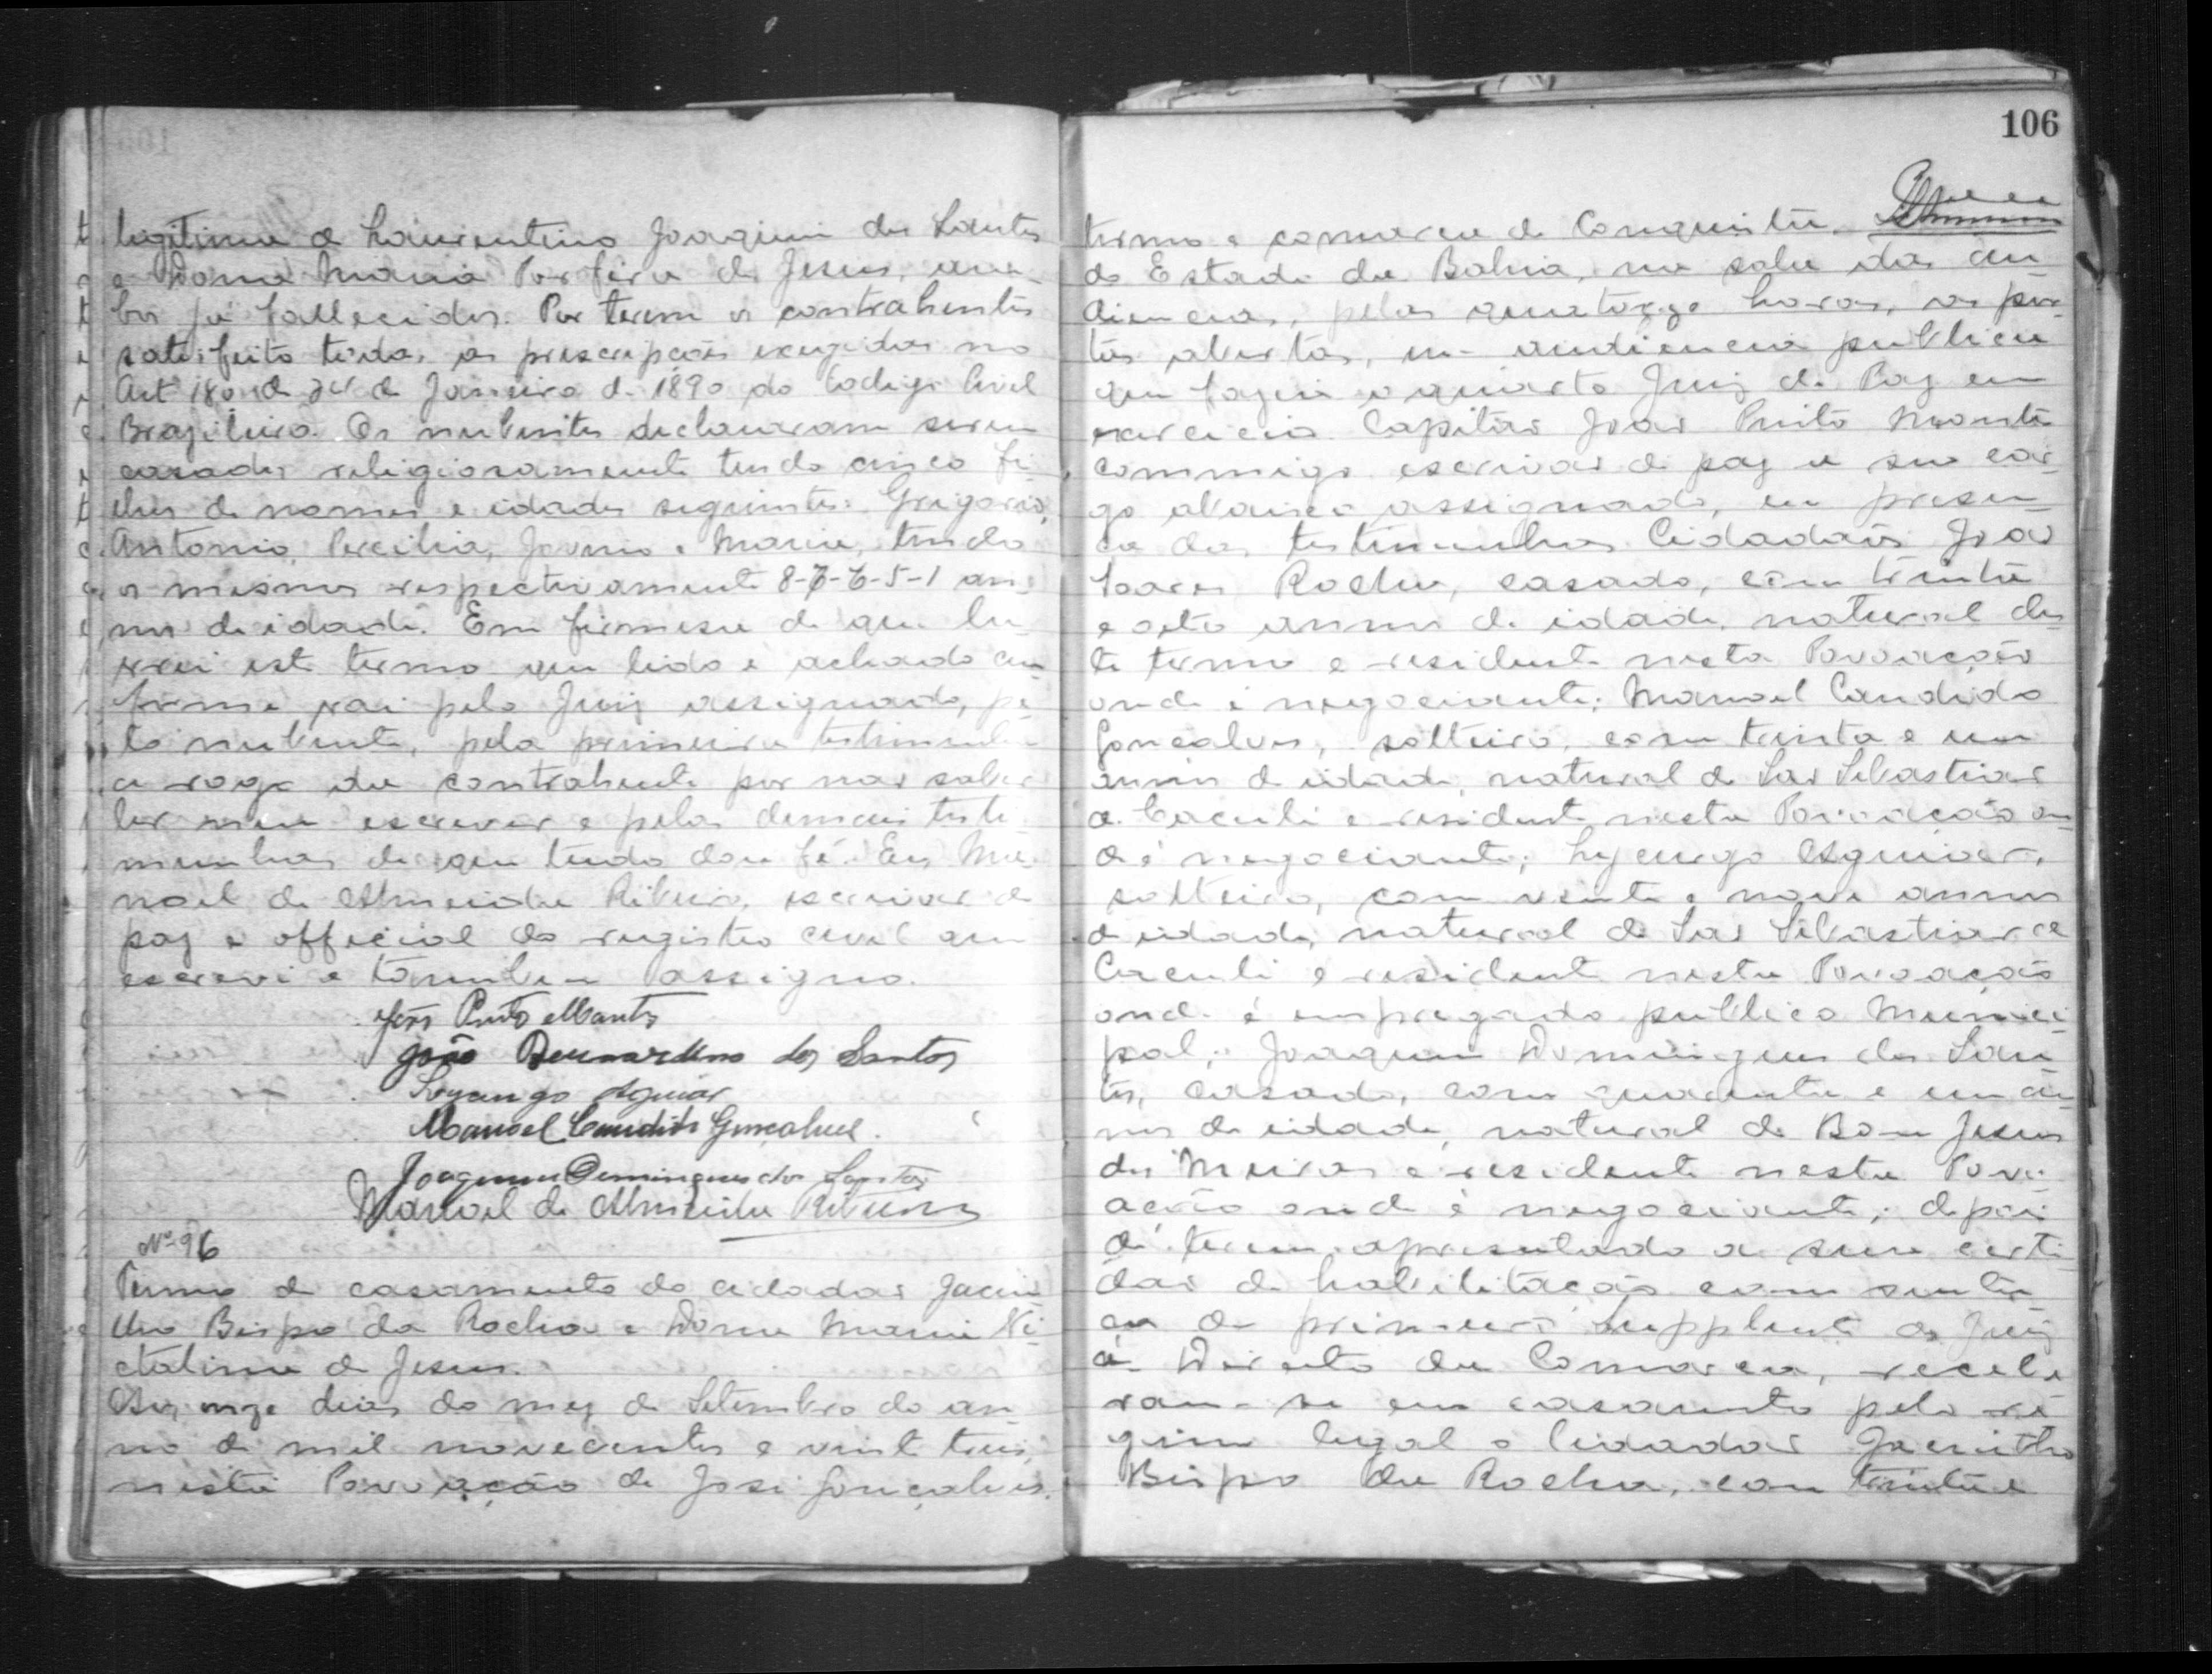 legitima de Laurentino Joaquim dos Santos
e Dona Maria Porfira de Jesus, am-
bos já fallecidos. Por terem os contrahentes
satisfeito todas as prescripções exigidas no
Art 180 de 24 de Janeiro de 1890 do Codigo Civil
Brazileiro. Os nubentes declararam serem
casados religiosamente tendo cinco fi-
lhos de nomes e idades seguintes: Grigorio,
Antonio, Percilia, Jovino e Maria, tendo
os mesmos respectivamente 8-7-6-5-1 an-
nos de idade. Em firmesa do que la-
vrei este termo que lido e achado con-
forme vai pelo Juiz assignado, pe-
lo nubente, pela primeira testimunha
a rogo da contrahente por não saber
ler nem escrever e pelas demais teste-
munhas do que tudo dou fé. Eu Ma-
noel de Almeida Ribeiro, escrivão de
paz e official do registro civil que
escrevi e tambem assigno.
João Pinto Montes
João Bernardino dos Santos
Lycurgo Aguiar
Manoel Candido Gonçalves.
Joaquim Domingues dos Santos
Manoel de Almeida Ribeiro
Nº 96
Termo de casamento do cidadão Jacin-
tho Bispo da Rocha e Dona Maria Vi-
ctalina de Jesus.
Aos onze dias do mez de Setembro do an-
no de mil novecentos e vinte treis,
nesta Povoação de José Gonçalves,
106
termo e comarca de Conquista,
do Estado da Bahia, na sala das au-
diencias, pelas quatorze horas, as por-
tas abertas, em audiencia publica
que fazia o quarto Juiz de Paz em
exercicio Capitão João Pinto Montes
commigo escrivão de paz a seu car-
go abaixo assignado, em presen-
ça das testimunhas Cidadãos João
Soares Rocha, casado, com trinta
e oito annos de idade, natural des-
te termo e residente nesta Povoação
onde é negociante; Manoel Candido
Gonçalves, solteiro, com trinta e um
annos de idade, natural de São Sebastião
de Caculé e residente nesta Povoação on-
de é negociante; Lycurgo Aguiar,
solteiro, com vinte e nove annos
de idade, natural de São Sebastião de
Caculé e residente nesta Povoação
onde é empregado publico Munici-
pal; Joaquim Domingues dos San-
tos, casado, com quarenta e um an-
nos de idade, natural de Bom Jesus
dos Meiras e residente nesta Povo-
ação onde é negociante; depois
de terem apresentado a sua certi-
dão de habilitação com senten-
ça do primeiro Supplente do Juiz
de Direito da Comarca, recebe-
ram-se em casamento pelo re-
gimen legal o Cidadão Jacintho
Bispo da Rocha, com trinta e